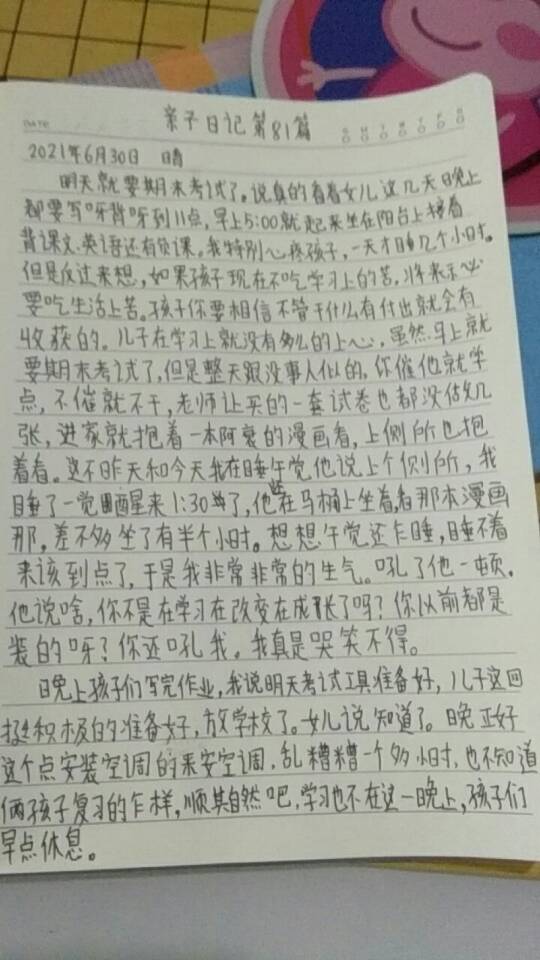 DATE
亲子日记第81篇
2021年6月30日 晴
明天就要期末考试了。说真的看着女儿这几天晚上
都要写呀背呀到11点,早上5:00就起来坐在阳台上接着
背课文.英语还有负课。我特别心疼孩子,一天才睡几个小时。
但是反过来想,如果孩子现在不吃学习上的苦.将来示必
要吃生活上苦。孩子你要相信不管干什么有付出就会有
收获的。儿子在学习上就没有多么的上心,虽然马上就
要期末考试了,但是整天跟没事人似的,你催他就学
点,不催就不干,老师让买的一套试卷也都没做几
张,进家就抱着一本阿衰的漫画看,上侧所也抱
着看。这不昨天和今天我在睡午觉他说上个侧所,我
睡了一觉醒来1:30了,他还在马桶上坐着,看那本漫画
那,差不多坐了有半个小时。想想午觉还乍睡,睡不着
来该到点了,于是我非常非常的生气。吼了他一顿.
他说啥,你不是在学习在改变在成长了吗?你以前都是
装的呀?你还吼我。我真是哭笑不得。
晚上孩子们写完作业,我说明天考试工具准备好,儿子这回
挺积极的准备好,放学校了。女儿说知道了。晚正好
这个点安装空调的来安空调.乱糟糟一个多小时.也不知道
俩孩子复习的乍样,顺其自然吧.学习也不在这一晚上,孩子们
早点休息。